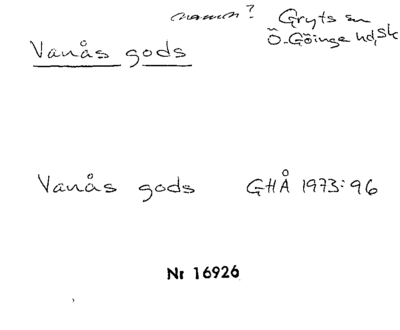 namn? Gryts sn
Ö-Göinge hd, Sk
Vanås gods
Vanås gods GHÅ 1973:96
Nr 16926